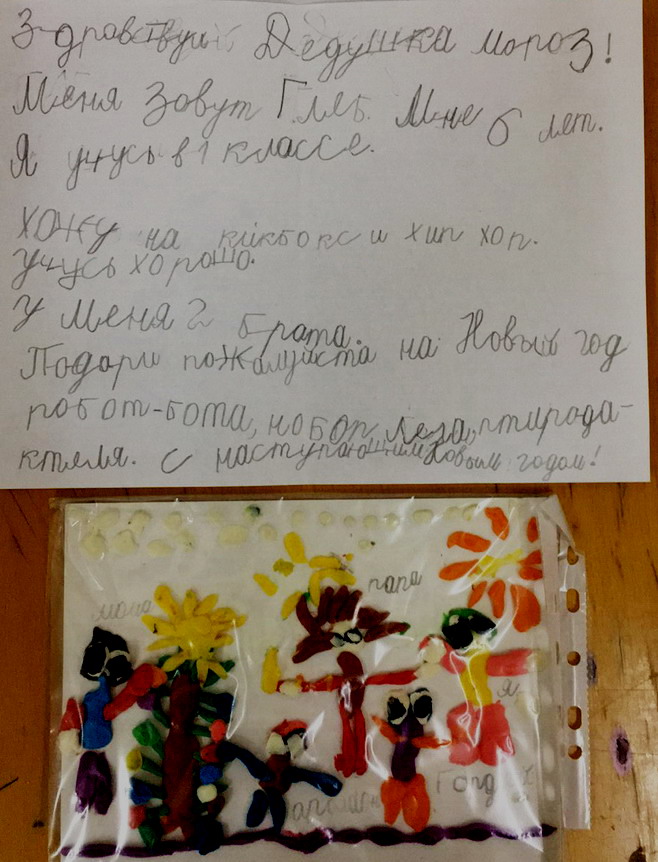 Здравствуй Дедушка мороз!
Меня Зовут Глеб. Мне 6 лет.
Я учусь в 1 классе.
хожу на кикбокс и хип хоп.
учусь хорошо.
У меня 2 брата.
Подари пожалуиста на Новый год
робот-бота, нобор Леза, птирода-
ктеля. С наступающим Новым годом!
папа
мама
я